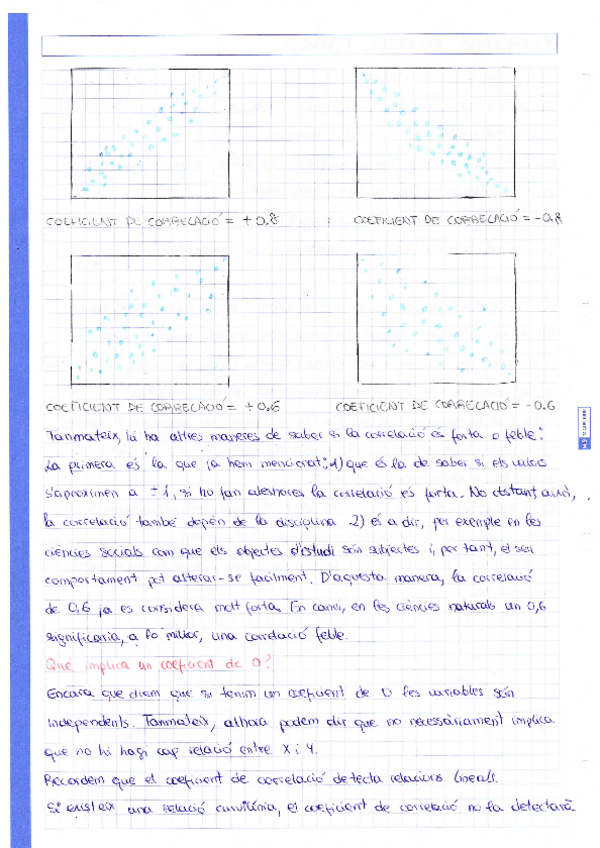 COEFICIENT DE CORRELACIÓ = + 0.8
COEFICIENT DE CORRELACIÓ = - 0.8
COEFICIENT DE CORRELACIÓ = + 0.6
COEFICIENT DE CORRELACIÓ = - 0.6
Tanmateix, hi ha altres maneres de saber si la correlació és forta o feble:
La primera és la que ja hem mencionat: 1) que és la de saber si els valors
s'aproximen a ± 1, si ho fan aleshores la correlació és forta. No obstant això,
la correlació també depèn de la disciplina 2) és a dir, per exemple en les
ciències socials com que els objectes d'estudi són subjectes i, per tant, el seu
comportament pot alterar-se facilment. D'aquesta manera, la correlació
de 0,6 ja es considera molt forta. En canvi, en les ciències naturals un 0,6
significaria, a lo millor, una correlació feble.
Què implica un coeficient de 0?
Encara que diem que si tenim un coeficient de 0 les variables són
independents. Tanmateix, alhora podem dir que no necessàriament implica
que no hi hagi cap relació entre X i Y.
Recordem que el coeficient de correlació detecta relacions lineals.
Si existeix una relació curvilínia, el coeficient de correlació no la detectarà.